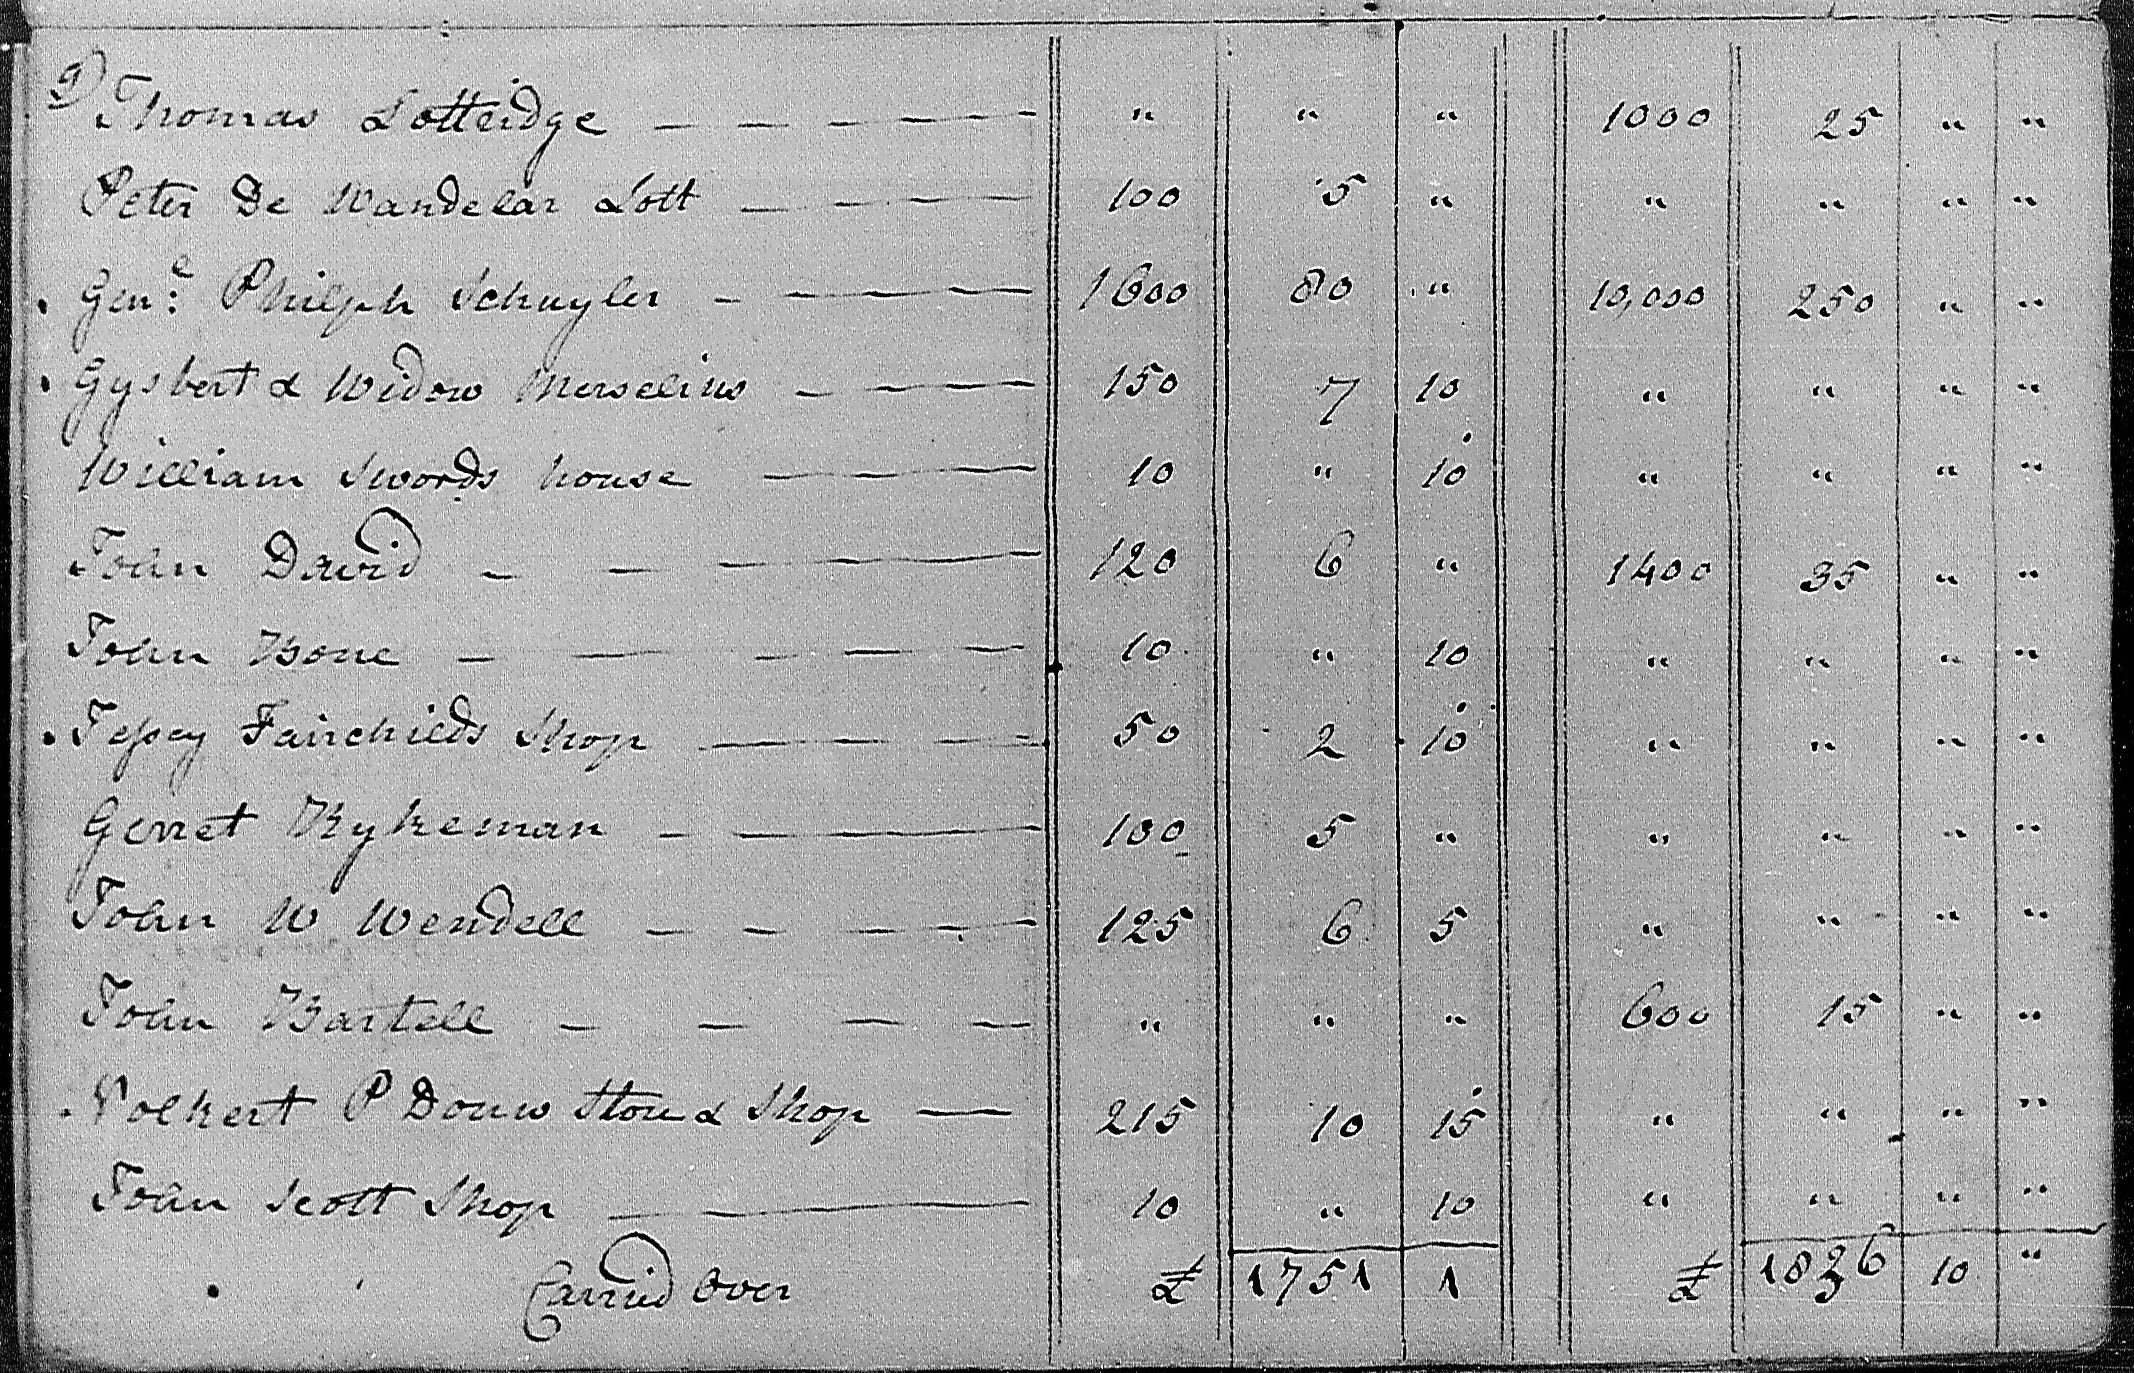 9) Thomas Lotteridge — — — — — " " " 1000 25 " "
Peter De Wandelar Lott — — — — 100 5 " " " " "
Genl: Philiph Schuyler — — — — 1600 80 " 10,000 250 " "
Gysbert & Widow Merselius — — — 150 7 10 " " " "
William Swords house — — — 10 " 10 " " " "
John David — — — — 120 6 " 1400 35 " "
John Bone — — — — — 10 " 10 " " " "
Jessey Fairchilds Shop — — — 50 2 10 " " " "
Gerret Rykeman — — 100 5 " " " " "
John W Wendell — — — — — 125 6 5 " " " "
John Bartell — — — — " " " 600 15 " "
Volkert P Douw Store & Shop — 215 10 15 " " " "
John Scott Shop — — 10 " 10 " " " "
Carried Over £ 1751 1 £ 1836 10 "